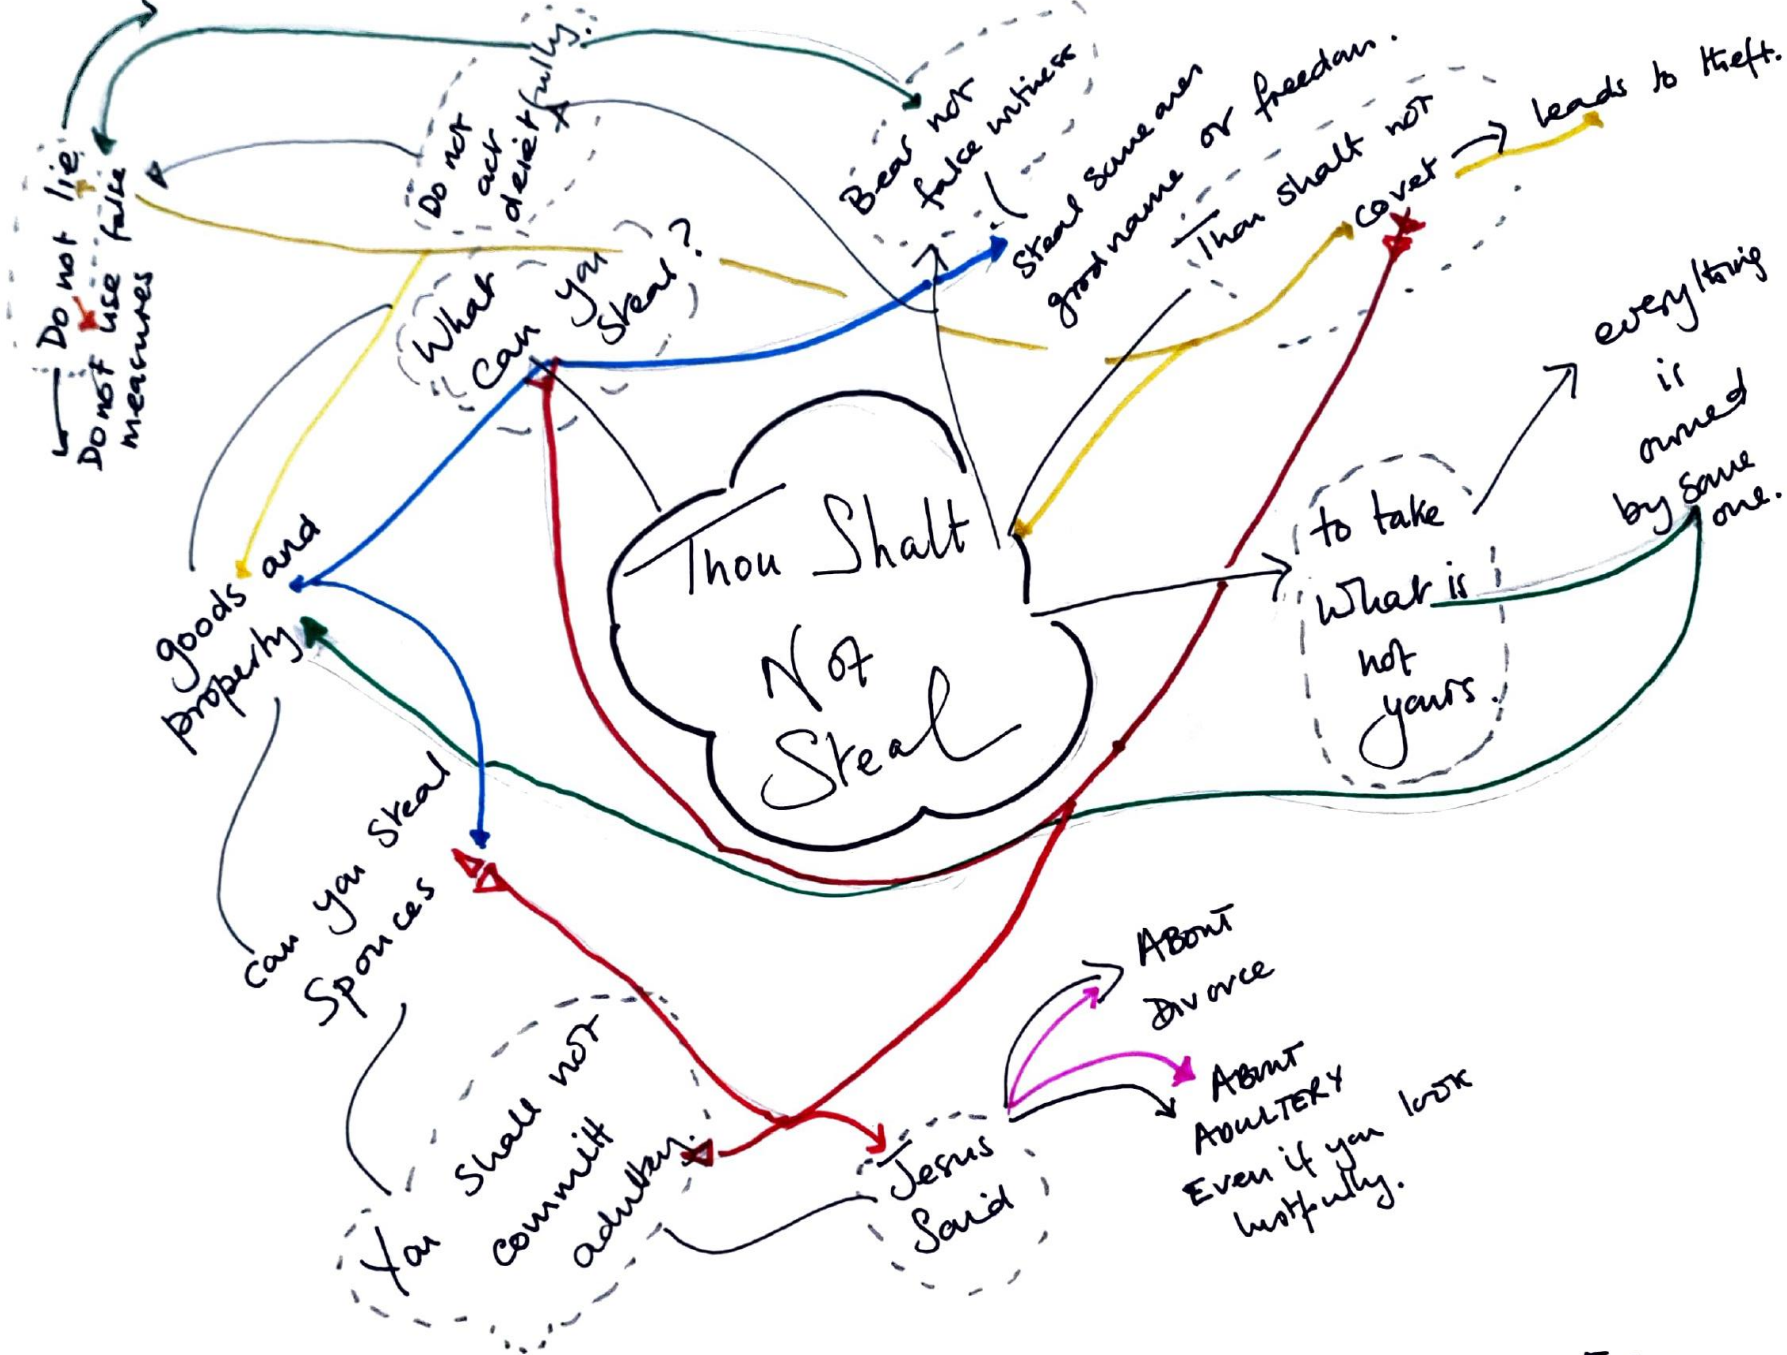 Do not lie
Do not use false
measures
Do not
act
deceitfully.
Bear not
false witness
Steal someones
good name or freedom.
Thou shalt not
covet
leads to theft.
What
can you
steal?
everything
is
owned
by some
one.
Thou Shalt
Not
Steal
to take
What is
not
yours.
goods and
property
can you steal
Spouces
You shall not
committ
adultery.
Jesus
Said
ABOUT
DIVORCE
ABOUT
ADULTERY
Even if you look
lustfully.